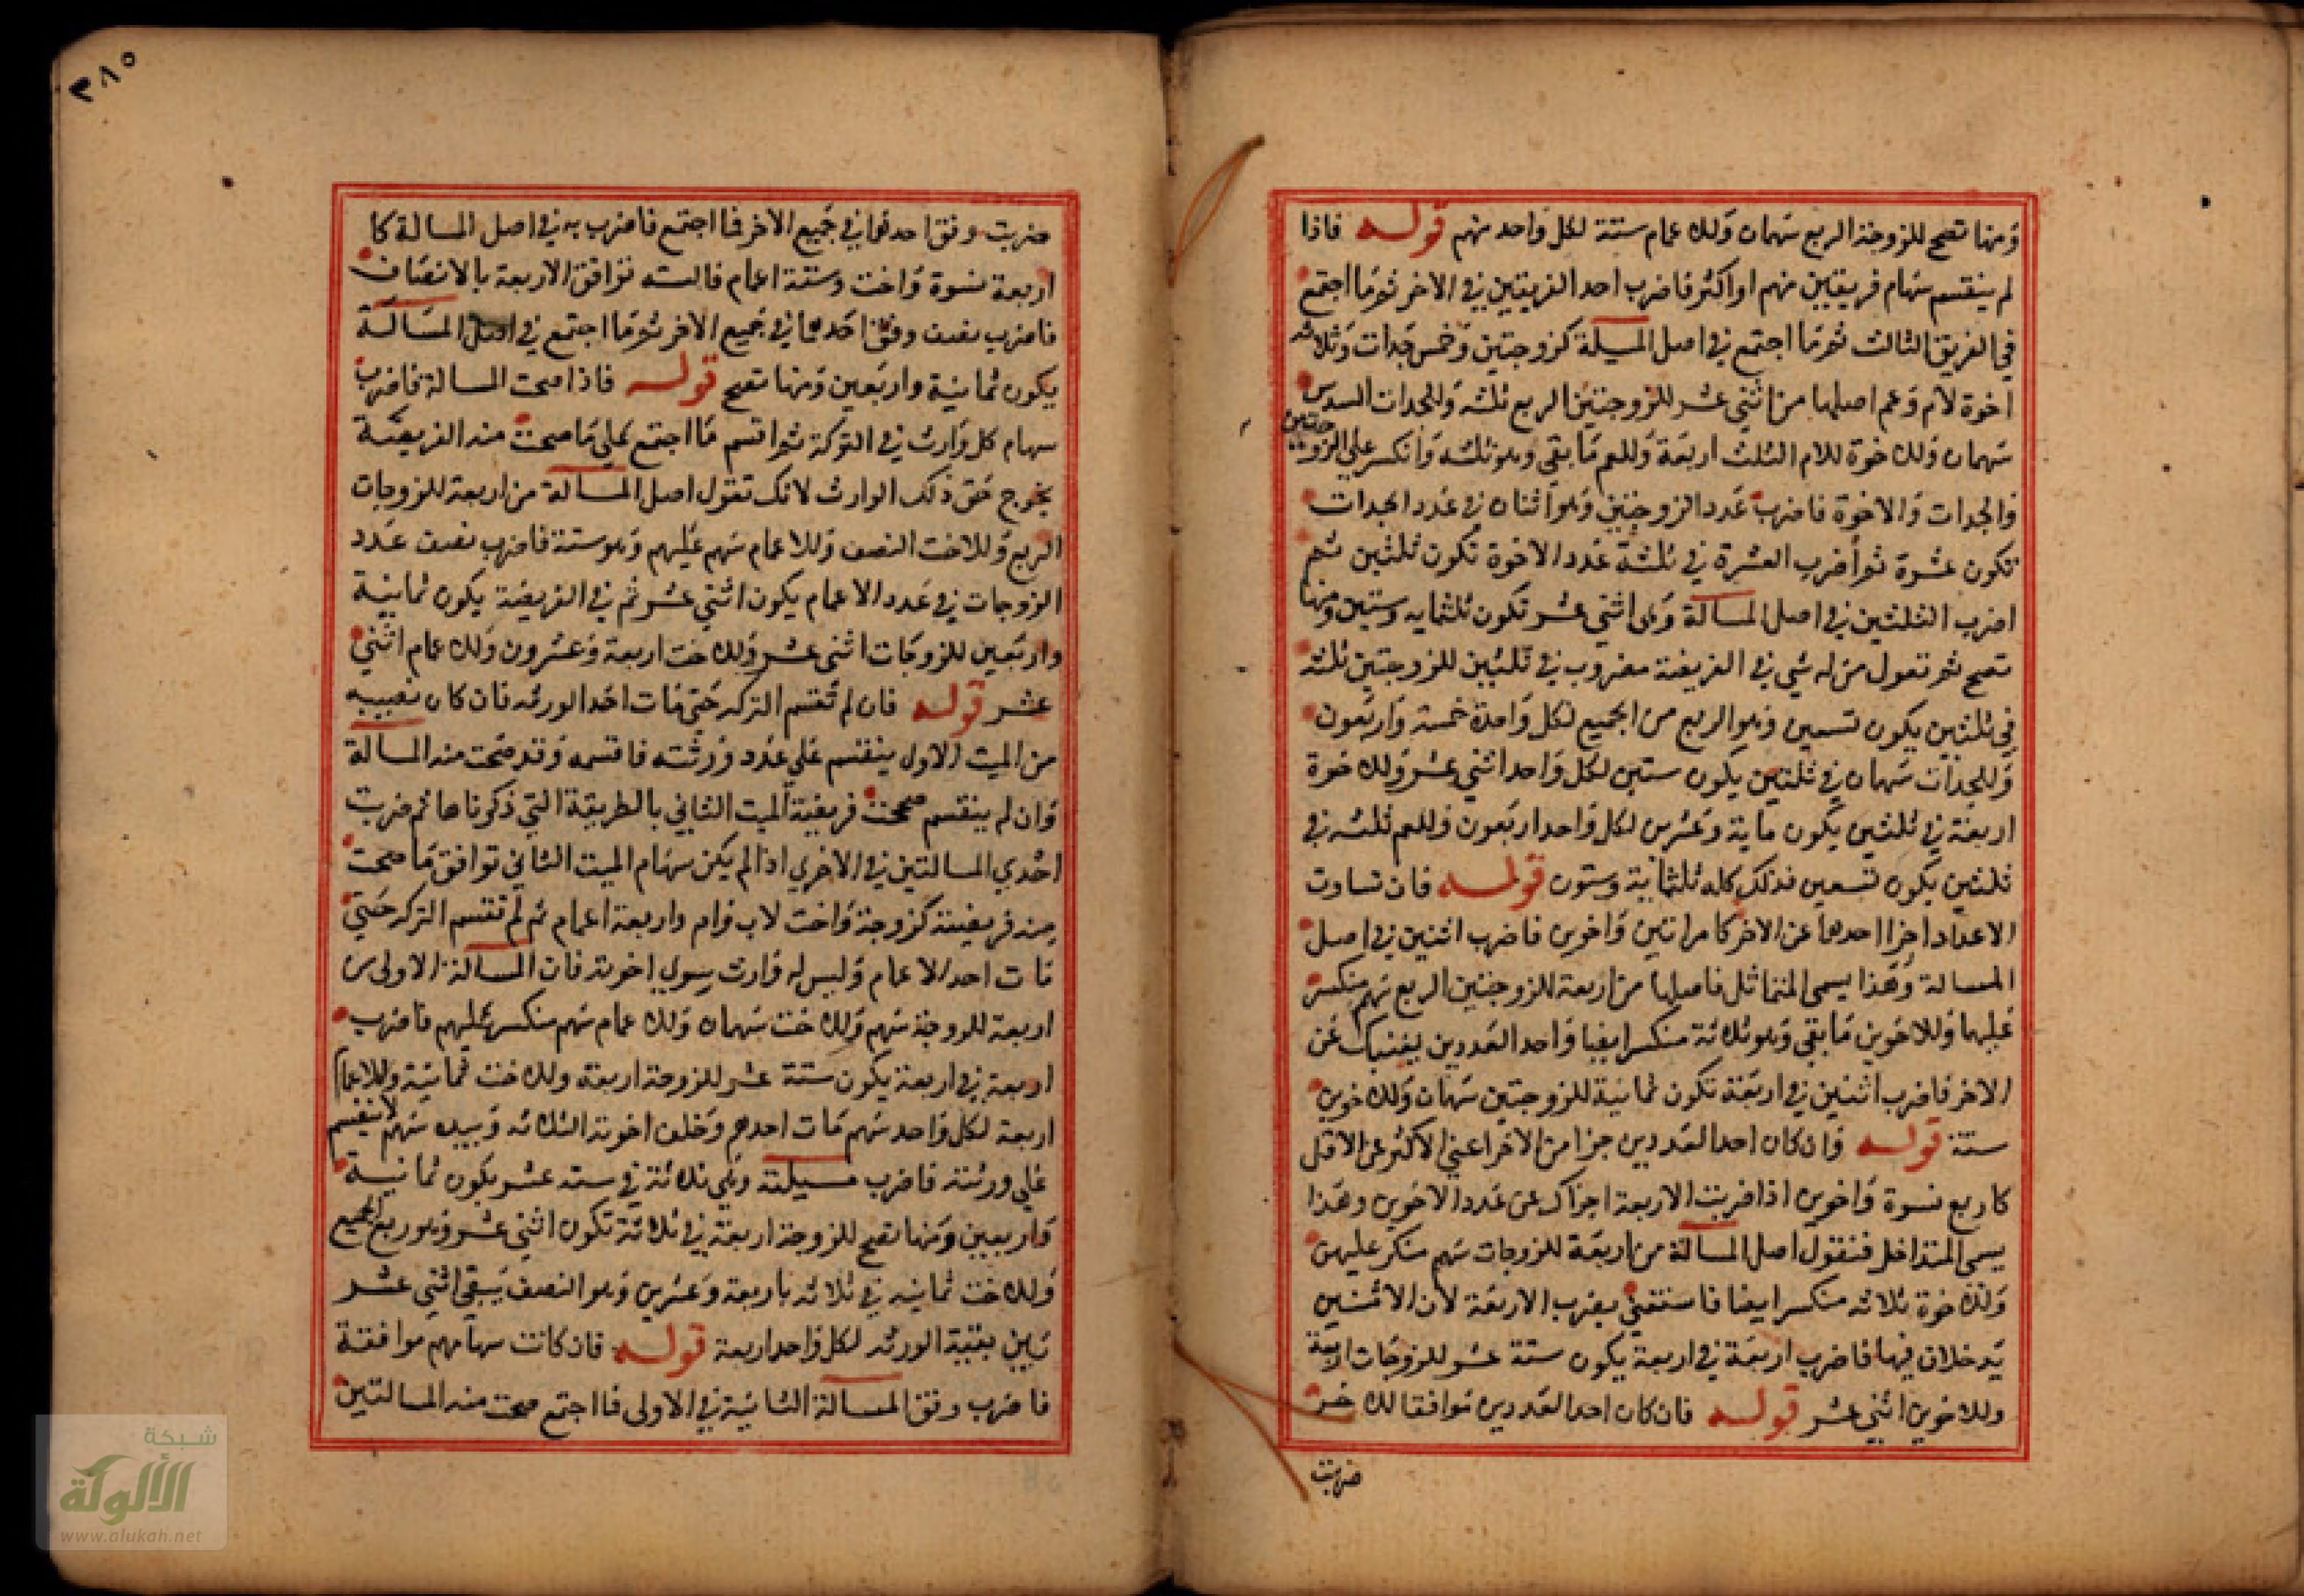 ومنها تصح للزوجة الربع سهمان وللاعمام ستة لكل واحد منهم قوله فاذا
لم ينقسم سهام فريقين منهم او اكثر فاضرب احد الفريقين في الاخر ثم ما اجتمع
في الفريق الثالث ثم ما اجتمع في اصل المسيلة كزوجتين وخمس جدات وثلاثه
اخوة لام وعم اصلها من اثني عشر للزوجتين الربع ثلثه وللجدات السدس
سهمان وللاخوة للام الثلث اربعة وللعم ما بقي وهو ثلثه وانكسر علي الزوجتين
والجدات والاخوة فاضرب عدد الزوجتين وهو اثنان في عدد الجدات
تكون عشرة ثم اضرب العشرة في ثلثة عدد الاخوة تكون ثلثين ثم
اضرب الثلثين في اصل المسالة وهى اثني عشر تكون ثلثمايه وستين ومنها
تصح ثم تقول من له شي في الفريضة مضروب في ثلثين للزوجتين ثلثه
في ثلثين يكون تسعين وهو الربع من الجميع لكل واحدة خمسة واربعون
وللجدات سهمان في ثلثين يكون ستين لكل واحد اثني عشر وللاخوة
اربعة في ثلثين يكون ماية وعشرين لكل واحد اربعون وللعم ثلثه في
ثلثين يكون تسعين فذلك كله ثلثماية وستون قوله فان تساوت
الاعداد اجزا احدهما عن الاخر كامراتين واخوين فاضرب اثنين في اصل
المسالة وهذا يسمى المتماثل فاصلها من اربعة للزوجتين الربع سهم منكسر
عليهما وللاخوين ما بقي وهو ثلاثة منكسر ايضا واحد العددين يغنيك عن
الاخر فاضرب اثنين في اربعة تكون ثمانية للزوجتين سهمان وللاخوين
ستة قوله وان كان احد العددين جزا من الاخر اعني الاكثر عن الاقل
كاربع نسوة واخوين اذا ضربت الاربعة اجزاك عن عدد الاخوين وهذا
يسمى المتداخل فنقول اصل المسالة من اربعة للزوجات سهم منكر عليهن
وللاخوة ثلاثه منكسر ايضا فاستغني بضرب الاربعة لان الاثنين
يدخلان فيها فاضرب اربعة في اربعة يكون ستة عشر للزوجات اربعة
وللاخوين اثني عشر قوله فان كان احد العددين موافقا للاخر
ضربت
٣٨٥
ضربت وفق احدهما في جميع الاخر فما اجتمع فاضرب به في اصل المسالة كا
اربعة نسوة واخت وستة اعمام فالسته توافق الاربعة بالانصاف
فاضرب نصف وفق احدهما في جميع الاخر ثم ما اجتمع في اصل المسالة
يكون ثمانية واربعين ومنها تصح قوله فاذا صحت المسالة فاضرب
سهام كل وارث في التركة ثم اقسم ما اجتمع علي ما صحت منه الفريضة
يخرج حق ذلك الوارث لانك تقول اصل المسالة من اربعة للزوجات
الربع وللاخت النصف وللاعمام سهم عليهم وهو ستة فاضرب نصف عدد
الزوجات في عدد الاعمام يكون اثني عشر ثم في الفريضة يكون ثمانية
واربعين للزوجات اثنى عشر وللاخت اربعة وعشرون وللاعمام اثني
عشر قوله فان لم تقسم التركه حتي مات احد الورثه فان كان نصيبه
من الميت الاول ينقسم علي عدد ورثته فاقسمه وقد صحت منه المسالة
وان لم ينقسم صححت فريضة الميت الثاني بالطريقة التي ذكرناها ثم ضربت
احدي المسالتين في الاخري اذا لم يكن سهام الميت الثاني توافق ما صحت
منه فريضته كزوجة واخت لاب وام واربعة اعمام ثم لم تقسم التركه حتي
مات احد الاعمام وليس له وارث سوي اخوته فان المسالة الاولى من
اربعة للزوجة سهم وللاخت سهمان وللاعمام سهم منكسر عليهم فاضرب
اربعة في اربعة يكون ستة عشر للزوجة اربعة وللاخت ثمانية وللاعمام
اربعة لكل واحد سهم مات احدهم وخلف اخوته الثلاثه وبيده سهم لا ينقسم
علي ورثته فاضرب مسيلته وهي ثلاثة في سته عشر يكون ثمانية
واربعين ومنها تصح للزوجة اربعة في ثلاثة تكون اثني عشر وهو ربع الجميع
وللاخت ثمانيه في ثلاثه باربعة وعشرين وهو النصف يبقي اثني عشر
بين بقية الورثه لكل واحد اربعة قوله فان كانت سهامهم موافقة
فاضرب وفق المسالة الثانية في الاولى فما اجتمع صحت منه المسالتين
شبكة
الألوكة
www.alukah.net